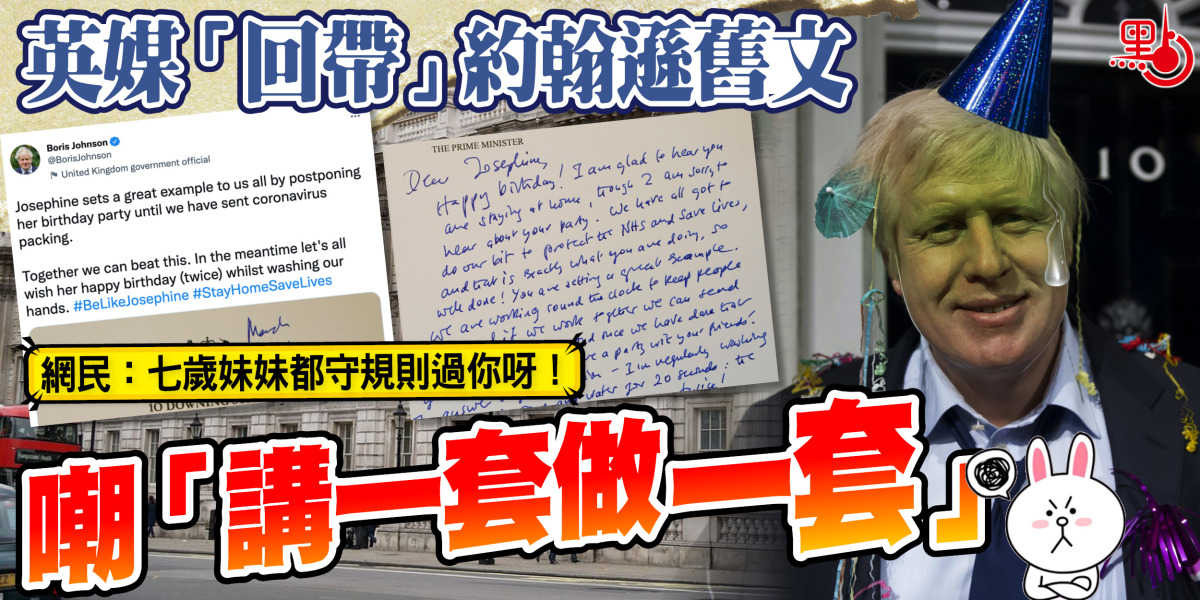 英媒「回帶」約翰遜舊文
點
Boris Johnson
@BorisJohnson
United Kingdom government official
Josephine sets a great example to us all by postponing
her birthday party until we have sent coronavirus
packing.
Together we can beat this. In the meantime let's all
wish her happy birthday (twice) whilst washing our
hands. #BeLikeJosephine #StayHomeSaveLives
March
THE PRIME MINISTER
Dear Josephine,
Happy birthday! I am glad to hear you
are staying at home, though I am sorry to
hear about your party. We have all got to
do our bit to protect the NHS and save lives,
and that is exactly what you are doing, so
well done! You are setting a great example.
We are working round the clock to keep people
if we work together we can send
and once we have done that
have a party with your friends!
- I'm regularly washing
water for 20 seconds: the
twice!
10 DOWNING
10
網民：七歲妹妹都守規則過你呀！
嘲「講一套做一套」